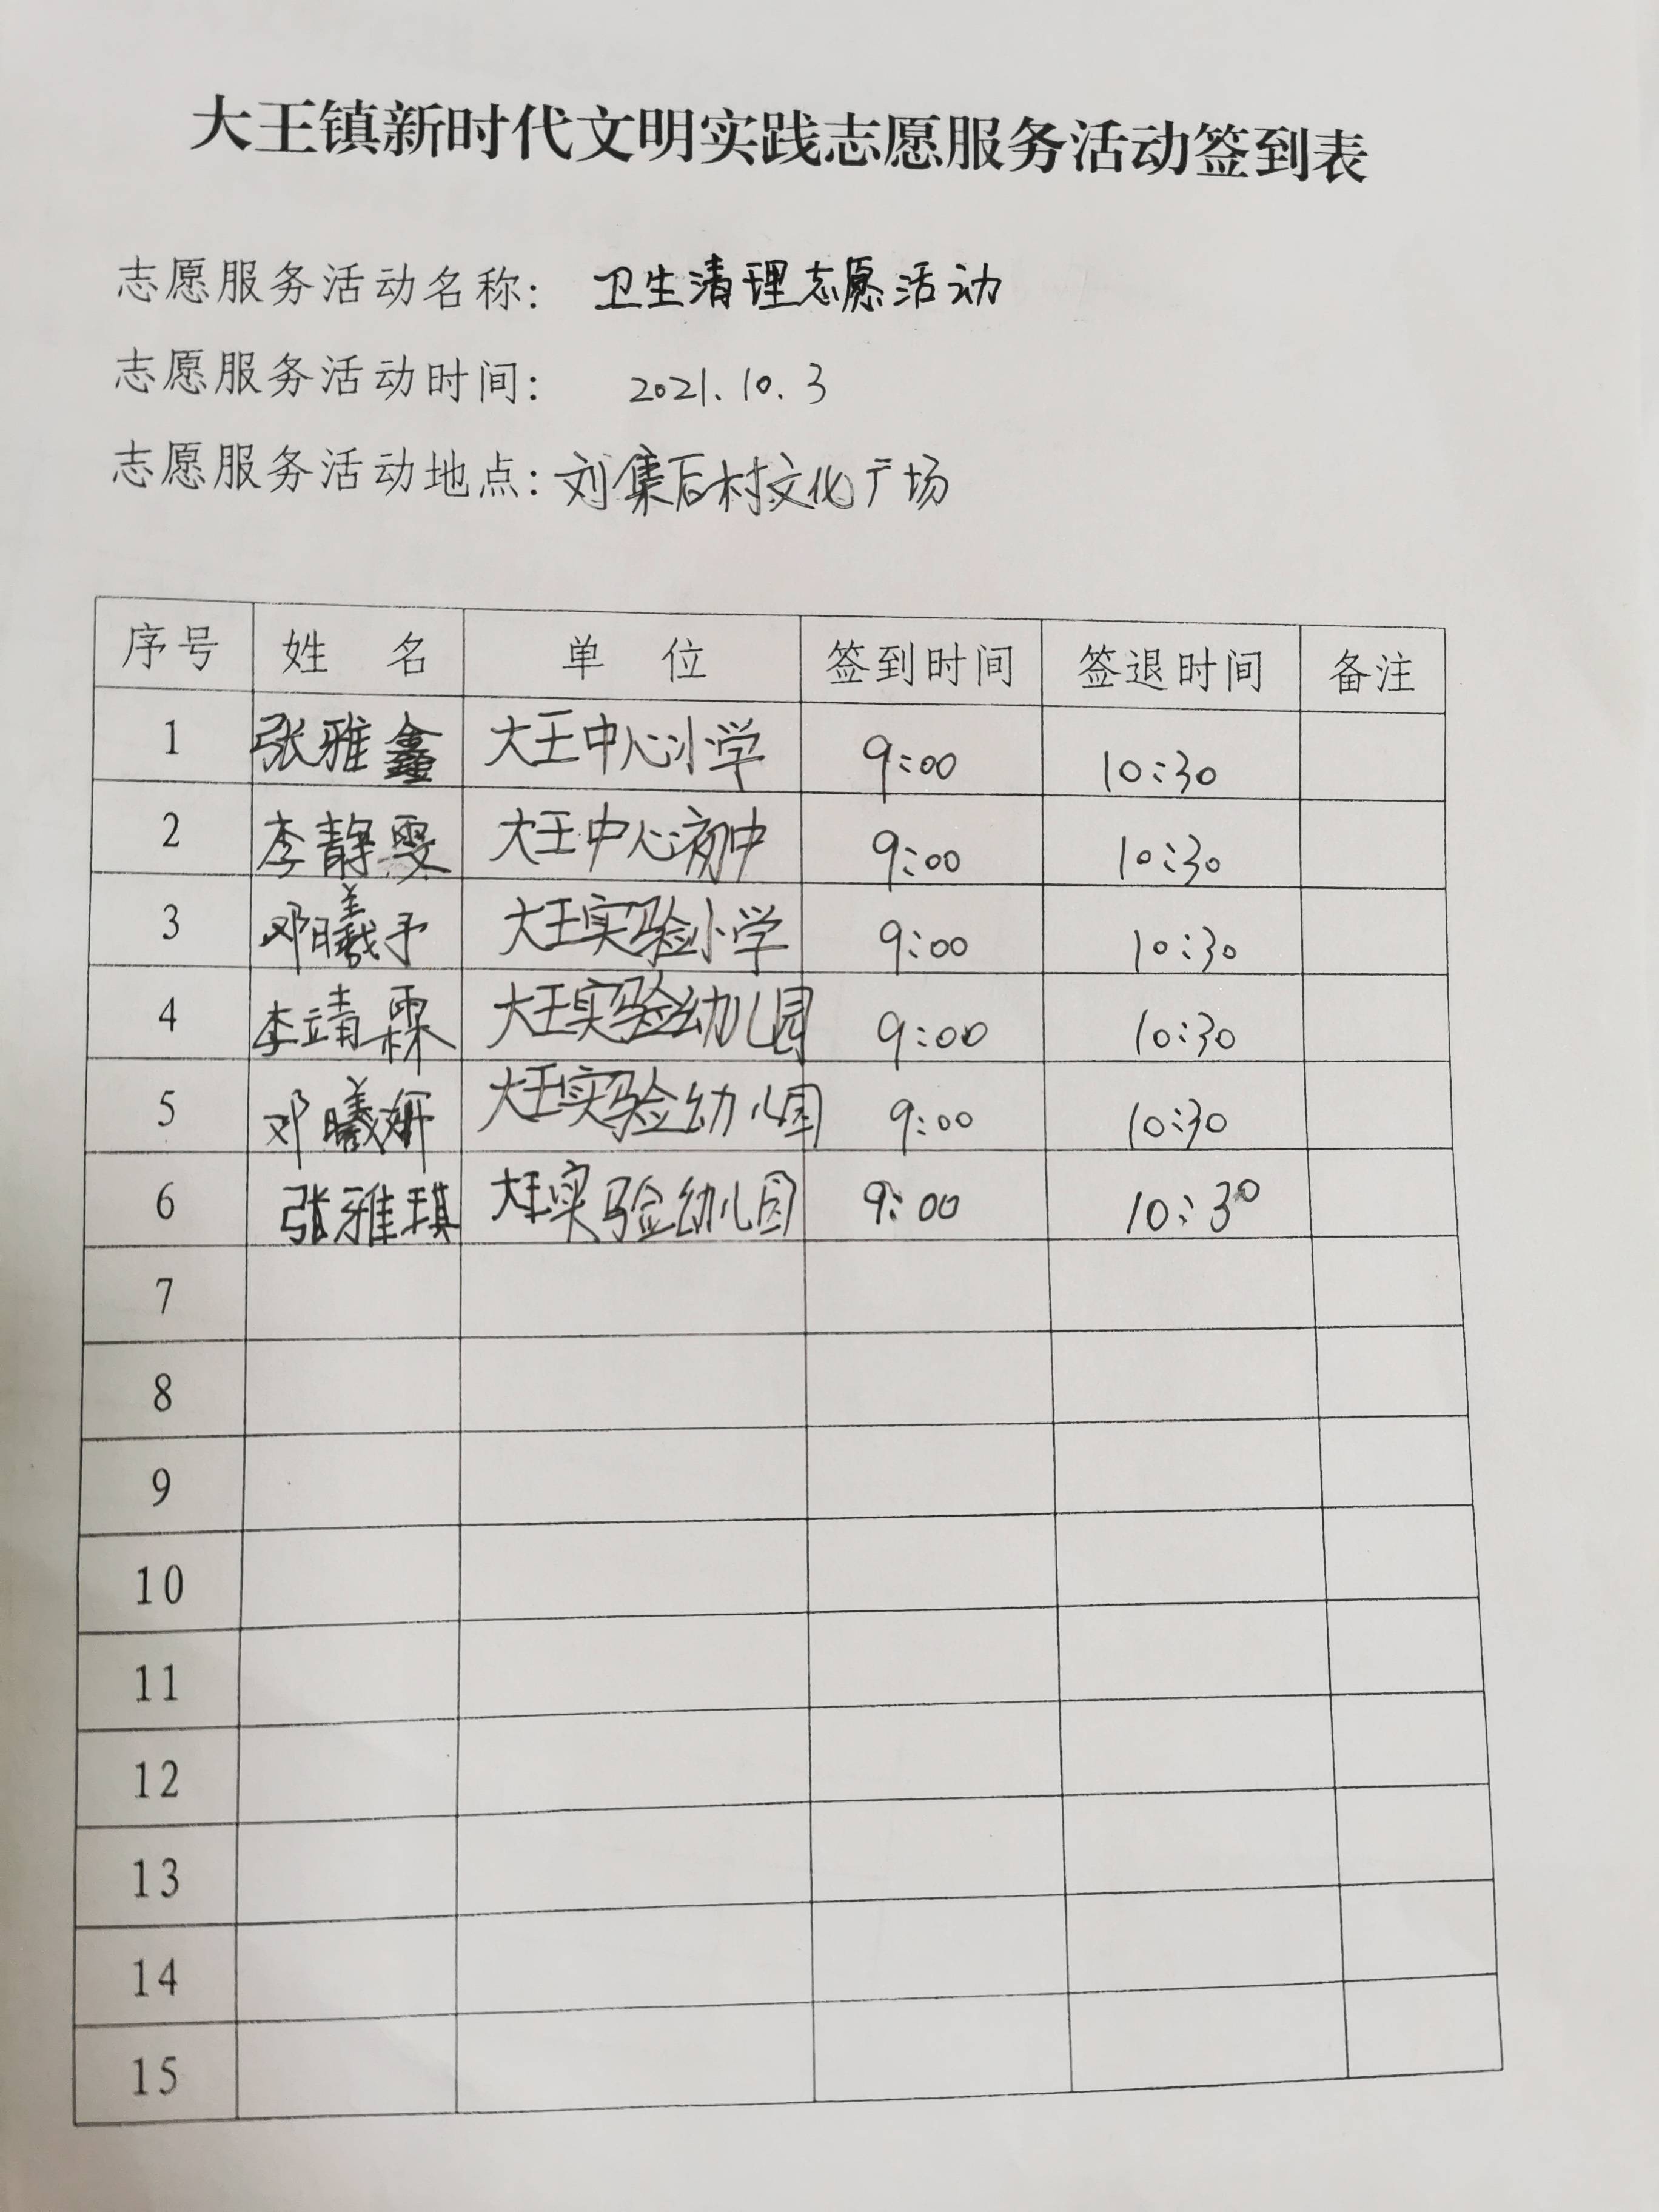 大王镇新时代文明实践志愿服务活动签到表
志愿服务活动名称: 卫生清理志愿活动
志愿服务活动时间: 2021.10.3
志愿服务活动地点: 刘集后村文化广场
序号 姓名 单位 签到时间 签退时间 备注
1 张雅鑫 大王中心小学 9:00 10:30
2 李静雯 大王中心初中 9:00 10:30
3 邓曦予 大王实验小学 9:00 10:30
4 李靖霖 大王实验幼儿园 9:00 10:30
5 邓曦妍 大王实验幼儿园 9:00 10:30
6 张雅琪 大王实验幼儿园 9:00 10:30
7
8
9
10
11
12
13
14
15